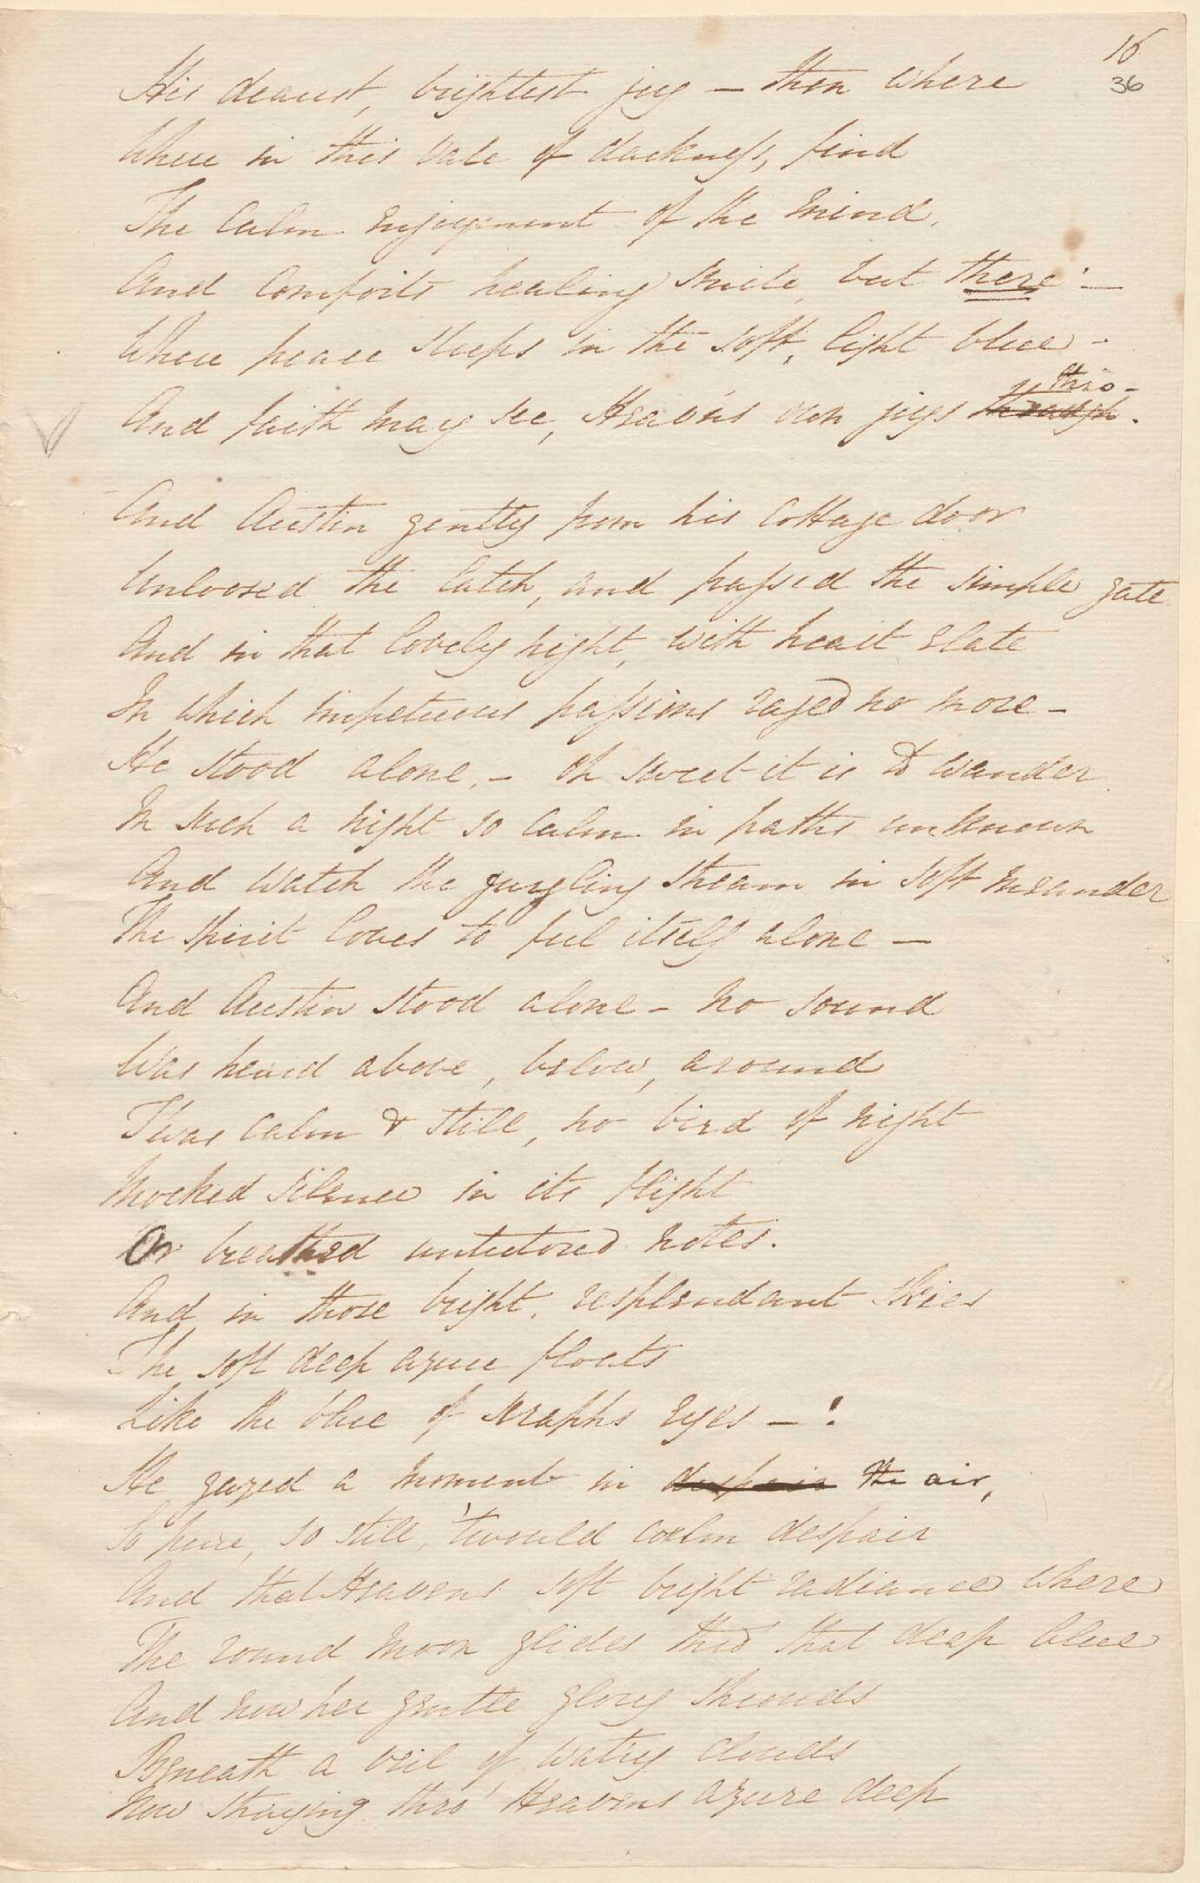 16
36
His dearest, brightest joy — then where
Where in this vale of darkness, find
The Calm Enjoyment of the Mind,
And Comforts healing Smile, but there! —
Where peace sleeps in the soft, light blue -
thro-
And faith may see, Heav'ns own joys through.
And Austin gently from his Cottage door
Unloosed the latch, and passed the simple gate
And in that lovely night, with heart Elate
In which impetuous passions raged no more -
He stood alone, - oh sweet it is to wander
In such a night so Calm in paths unknown
And Watch the gurgling stream in soft Meander
The Spirit loves to feel itself alone —
And Austin stood alone - no sound
Was heard above, below, around
Twas Calm & still, no bird of night
Mocked Silence in its flight
Or breathed untutored notes.
And in those bright, resplendant Skies
The soft deep azure floats
Like the blue of seraphs Eyes — !
He gazed a moment in despair the air,
So pure, so still, 'twould calm despair
And that Heavens soft bright radiance where
The round Moon glides thro that deep blue
And now her gentle glory shrouds
Beneath a veil of watry Clouds
Now straying thro' Heavens azure deep